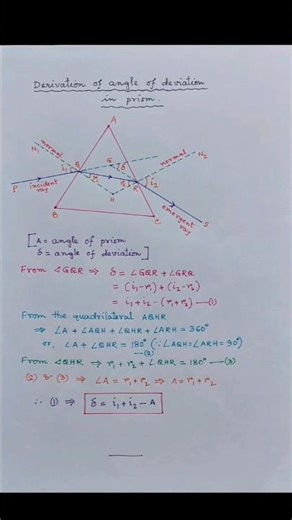 Derivation of angle of deviation
in prism.
A
N₁
normal
normal
N₂
G
δ
i₁
Q
r₁
r₂
R
i₂
P
incident
ray
H
B
C
emergent
ray
S
[A = angle of prism
δ = angle of deviation]
From △GQR ⇒ δ = ∠GQR + ∠GRQ
= (i₁-r₁) + (i₂-r₂)
= i₁ + i₂ - (r₁ + r₂) —(1)
From the quadrilateral AQHR
⇒ ∠A + ∠AQH + ∠QHR + ∠ARH = 360°
or, ∠A + ∠QHR = 180° (∵ ∠AQH = ∠ARH = 90°)
—(2)
From △QHR ⇒ r₁ + r₂ + ∠QHR = 180° —(3)
(2) & (3) ⇒ ∠A = r₁ + r₂ ⇒ A = r₁ + r₂
∴ (1) ⇒ δ = i₁ + i₂ - A